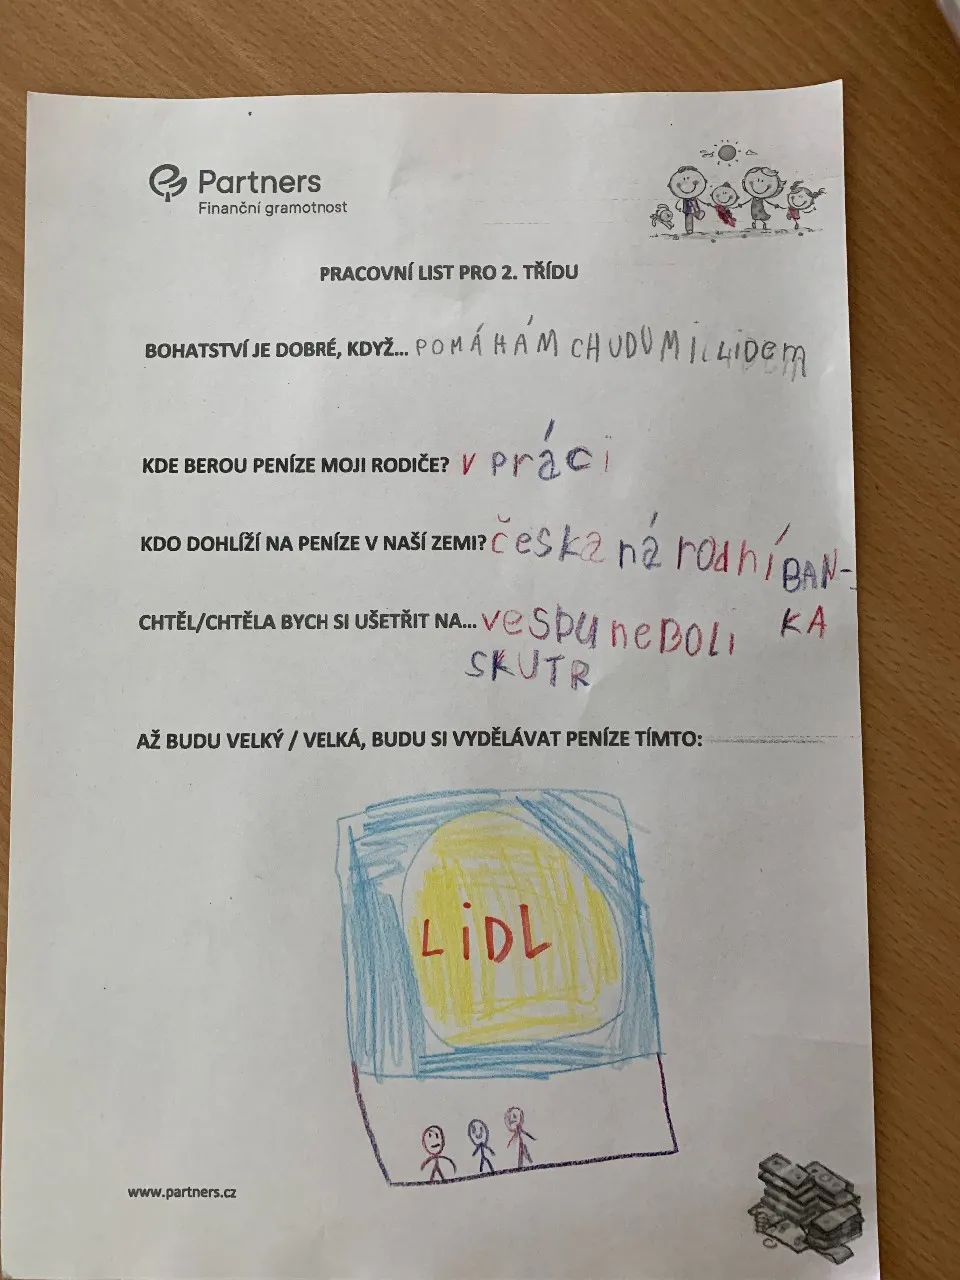 Partners
Finanční gramotnost
PRACOVNÍ LIST PRO 2. TŘÍDU
BOHATSTVÍ JE DOBRÉ, KDYŽ... POMÁHÁM CHUDUM
KDE BEROU PENÍZE MOJI RODIČE? V práci
KDO DOHLÍŽÍ NA PENÍZE V NAŠÍ ZEMI? česka národní BAN-
KA
CHTĚL/CHTĚLA BYCH SI UŠETŘIT NA... vespu neBoli
SKUTR
AŽ BUDU VELKÝ / VELKÁ, BUDU SI VYDĚLÁVAT PENÍZE TÍMTO:
LiDL
www.partners.cz